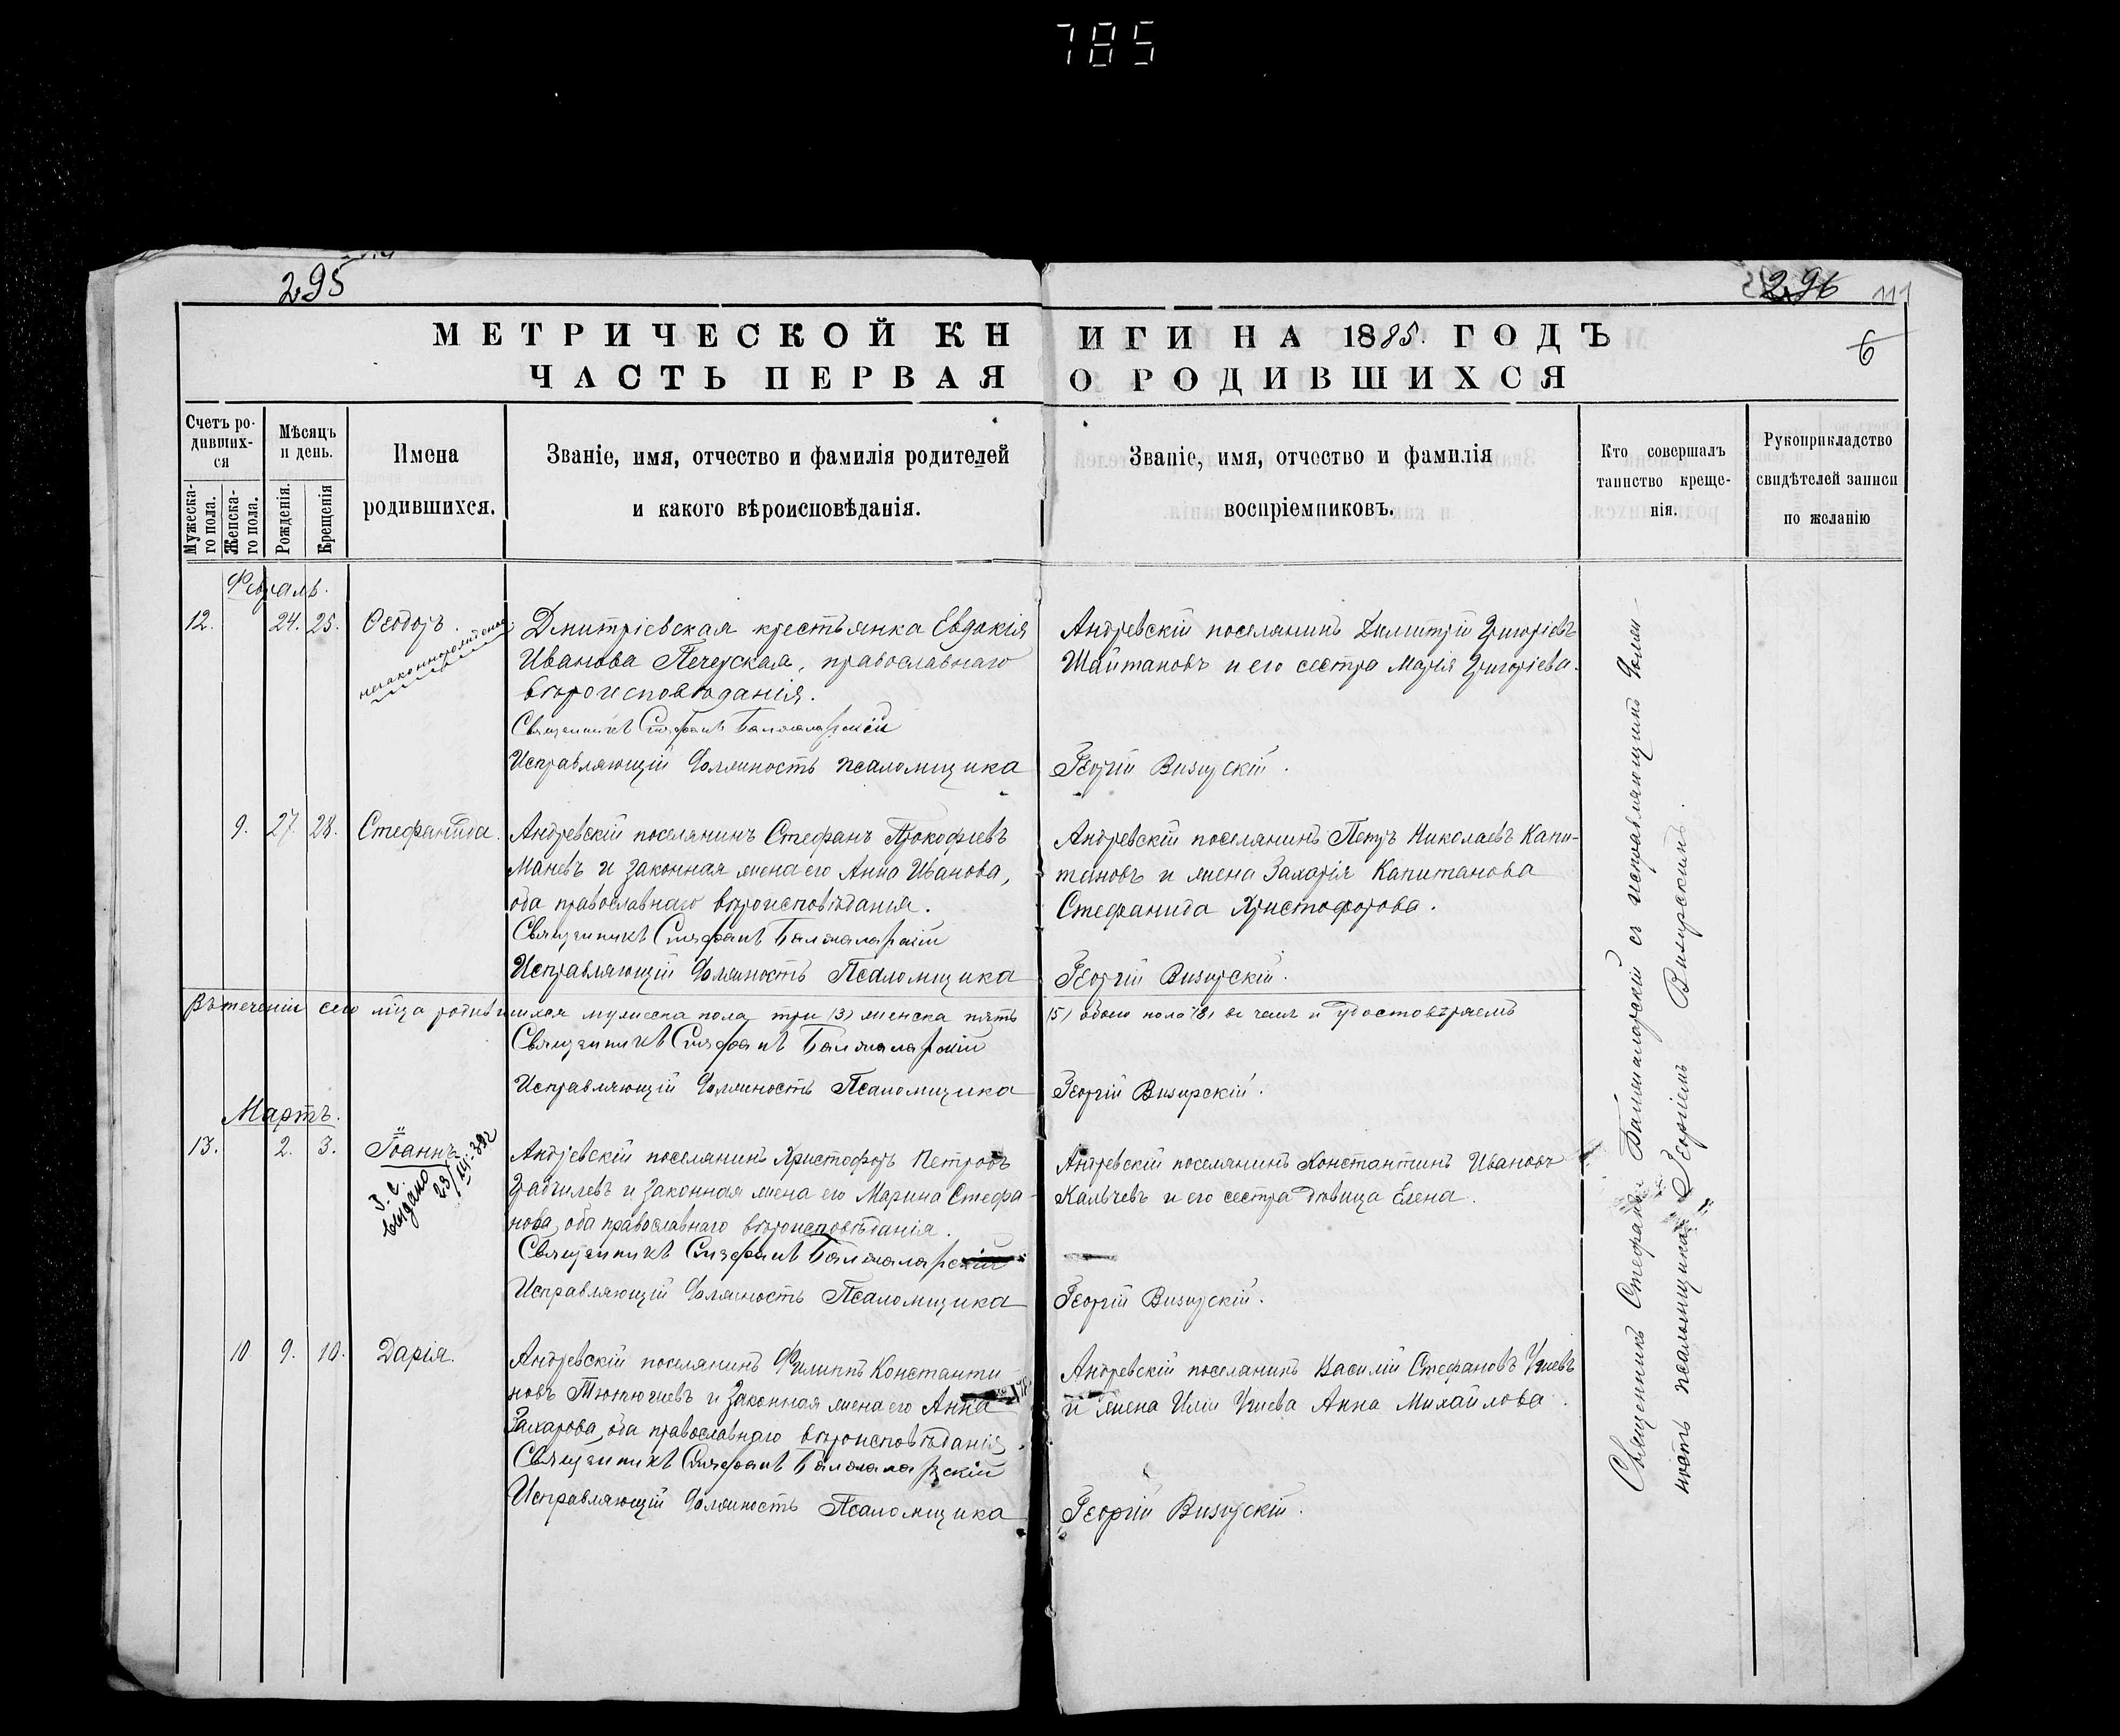 785
295
296
111
6
МЕТРИЧЕСКОЙ КНИГИ НА 1885. ГОДЪ
ЧАСТЬ ПЕРВАЯ О РОДИВШИХСЯ
Счетъ ро-
дивших-
ся
Мужеска-
го пола.
Женска-
го пола.
Мѣсяцъ
и день.
Рожденія.
Крещенія
Имена
родившихся.
Званіе, имя, отчество и фамилія родителей
и какого вѣроисповѣданія.
Званіе, имя, отчество и фамилія
воспріемниковъ.
Кто совершалъ
таинство креще-
нія.
Рукоприкладство
свидѣтелей записи
по желанію
Февраль.
12. 24. 25. Ѳеодоръ.
незаконнорожденный
Дмитріевская крестьянка Евдокія
Иванова Печерская, православнаго
вѣроисповѣданія.
Священникъ Стефанъ Балжаларскій
Исправляющій должность псаломщика Георгій Визирскій.
Андреевскій поселянинъ Димитрій Григоріевъ
Шайтановъ и его сестра Марія Григоріева.
9. 27. 28. Стефанида.
Андреевскій поселянинъ Стефанъ Прокофіевъ
Маневъ и законная жена его Анна Иванова,
оба православнаго вѣроисповѣданія.
Священникъ Стефанъ Балжаларскій
Исправляющій должность Псаломщика Георгій Визирскій.
Андреевскій поселянинъ Петръ Николаевъ Капи-
тановъ и жена Захарія Капитанова
Стефанида Христофорова.
Въ теченіи сего мѣсца родившихся мужеска пола три (3) женска пять (5) обоего пола (8) въ чемъ и удостовѣряемъ
Священникъ Стефанъ Балжаларскій
Исправляющій должность Псаломщика Георгій Визирскій.
Мартъ.
13. 2. 3. Іоаннъ
выдано
Андреевскій поселянинъ Христофоръ Петровъ
Грабчилевъ и законная жена его Марина Стефа-
нова, оба православнаго вѣроисповѣданія.
Священникъ Стефанъ Балжаларскій
Исправляющій должность Псаломщика Георгій Визирскій.
Андреевскій поселянинъ Константинъ Ивановъ
Кальчевъ и его сестра дѣвица Елена.
10 9. 10. Дарія.
Андреевскій поселянинъ Филиппъ Константи-
новъ Тютюгиевъ и законная жена его Анна
Захарова, оба православнаго вѣроисповѣданія.
Священникъ Стефанъ Балжаларскій
Исправляющій должность Псаломщика Георгій Визирскій.
Андреевскій поселянинъ Василій Стефановъ Узиевъ
и жена Иліи Узиева Анна Михайлова.
Священникъ Стефанъ Балжаларскій съ исправляющимъ долж-
ность псаломщика Георгіемъ Визирскимъ.